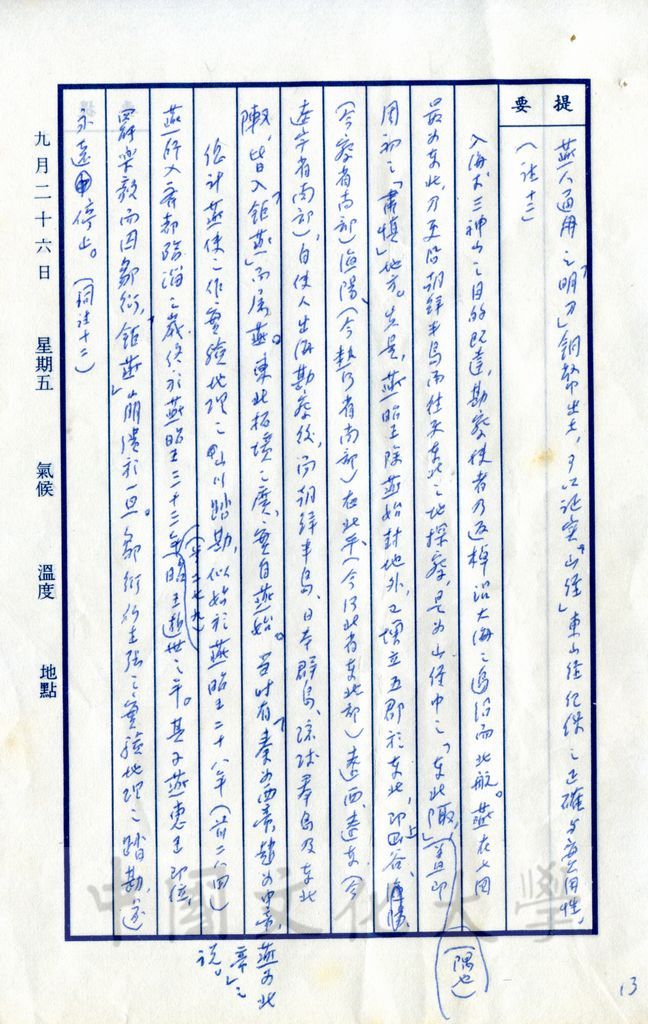 提要
燕人通用之「明刀」銅幣出土，可以証實「山經」東山經紀俤之正確与实用性，
（注十二）
入海求三神山之目的既達，勘察使者乃返棹沿大海之邊沿而北航。燕在七国
最为東北，刀更沿朝鮮半島而往來東北之地探察，是为山經中之「東北陬」，蓋即
（隅也）
周初之「肅慎」地方。先是，燕昭王除燕始封地外，又增立五郡於東北，即上谷、漁陽
（今察省南部）漁陽（今熱河省南部）右北平（今河北省東北部）遼西、遼東（今
遼寧省南部），自使人出海勘察後，而朝鮮半島、日本群島、琉球羣島及東北
陬，皆入「鉅燕」而屬燕。東北拓境之廣，實自燕始。当时有「秦为西帝，趙为中帝，燕为北
帝」之說。
總計燕使之作實驗地理之山川踏勘，似始於燕昭王二十八年（前二八四）
燕師入齊都臨淄之歲，終於燕昭王三十三年（前二七九）昭王逝世之年。其子燕惠王即位，
罷樂毅而囚鄒衍，「鉅燕」崩潰於一旦。鄒衍所主張之實驗地理之踏勘，遂
永遠停止。（同注十二）
九月二十六日 星期五 氣候 溫度 地點
中國文化大學
13